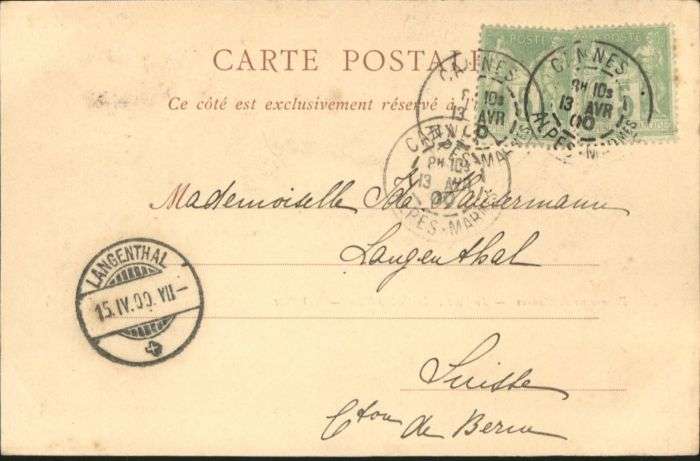 CARTE POSTALE
Ce côté est exclusivement réservé à l'
POSTE
CANNES
PH 10S
13 AVR
00
ALPES-MARMES
CANNES
PH 10S
13 AVR
00
ALPES-MARMES
CANNES
PH 10S
13 AVR
00
ALPES-MARMES
Mademoiselle Ida
Langenthal
Suisse
Cton de Berne
LANGENTHAL
15.IV.00. VII-